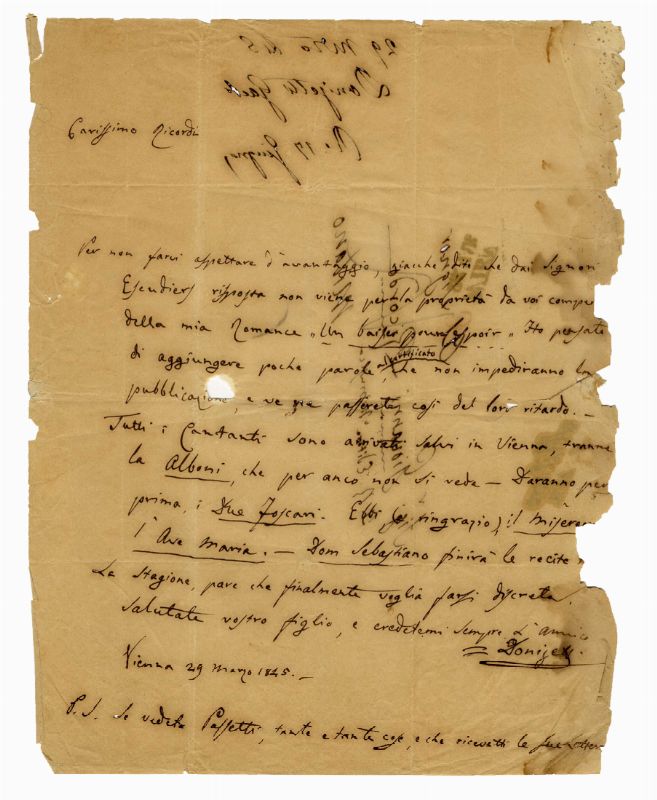 Carissimo Ricordi
Per non farvi aspettare d'avantaggio, giacchè diti che dai Signori
Escudiers risposta non viene per la proprietà da voi compe
della mia Romance "Un baiser pour espoir" Ho pensato
di aggiungere poche parole al certificato, che non impediranno la
pubblicazione, e ve ne passerete così del loro ritardo. —
Tutti i Cantanti sono arrivati salvi in Vienna, tranne
la Alboni, che per anco non si vede — Daranno per
prima, i Due Foscari. Ebbi (e ringrazio) il Miserer
l'Ave Maria. — Dom Sebastiano finirà le recite
La Stagione, pare che finalmente voglia farsi discreta.
Salutate vostro figlio, e credetemi sempre L'Amico
Donizett
Vienna 29 Marzo 1845. —
P. S. Se vedete Passetti, tante e tante cose, e che ricevetti le sue